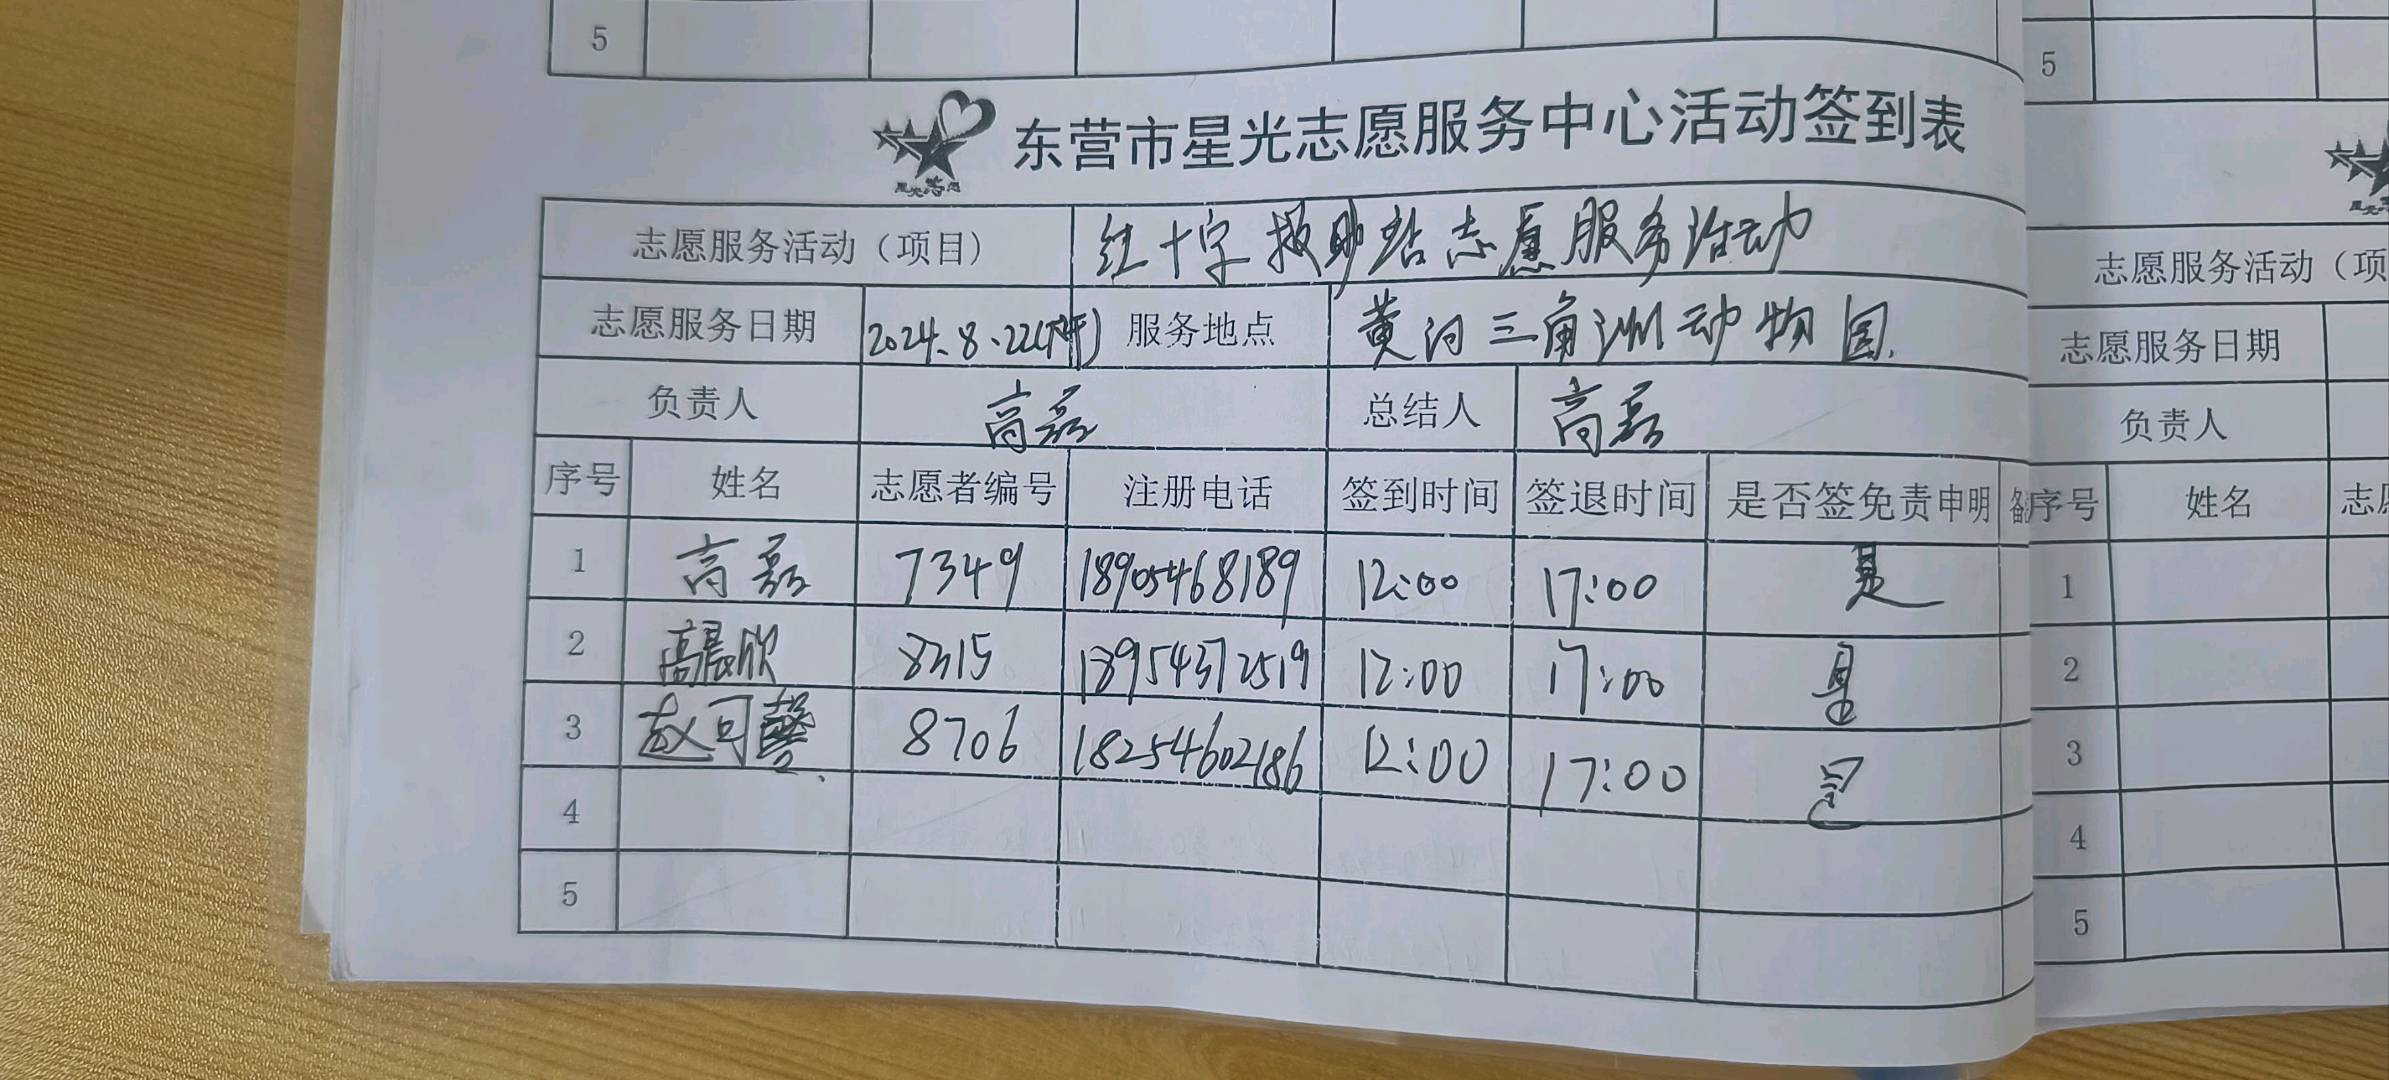 5
5
东营市星光志愿服务中心活动签到表
志愿服务活动（项目） 红十字救助站志愿服务活动
志愿服务日期 2024.8.22(下午) 服务地点 黄河三角洲动物园
负责人 高磊 总结人 高磊
序号 姓名 志愿者编号 注册电话 签到时间 签退时间 是否签免责申明 备
1 高磊 7349 18905468189 12:00 17:00 是
2 高晨欣 8315 18954372519 12:00 17:00 是
3 赵可馨 8706 18254602186 12:00 17:00 是
4
5
志愿服务活动（项
志愿服务日期
负责人
序号 姓名 志愿
1
2
3
4
5